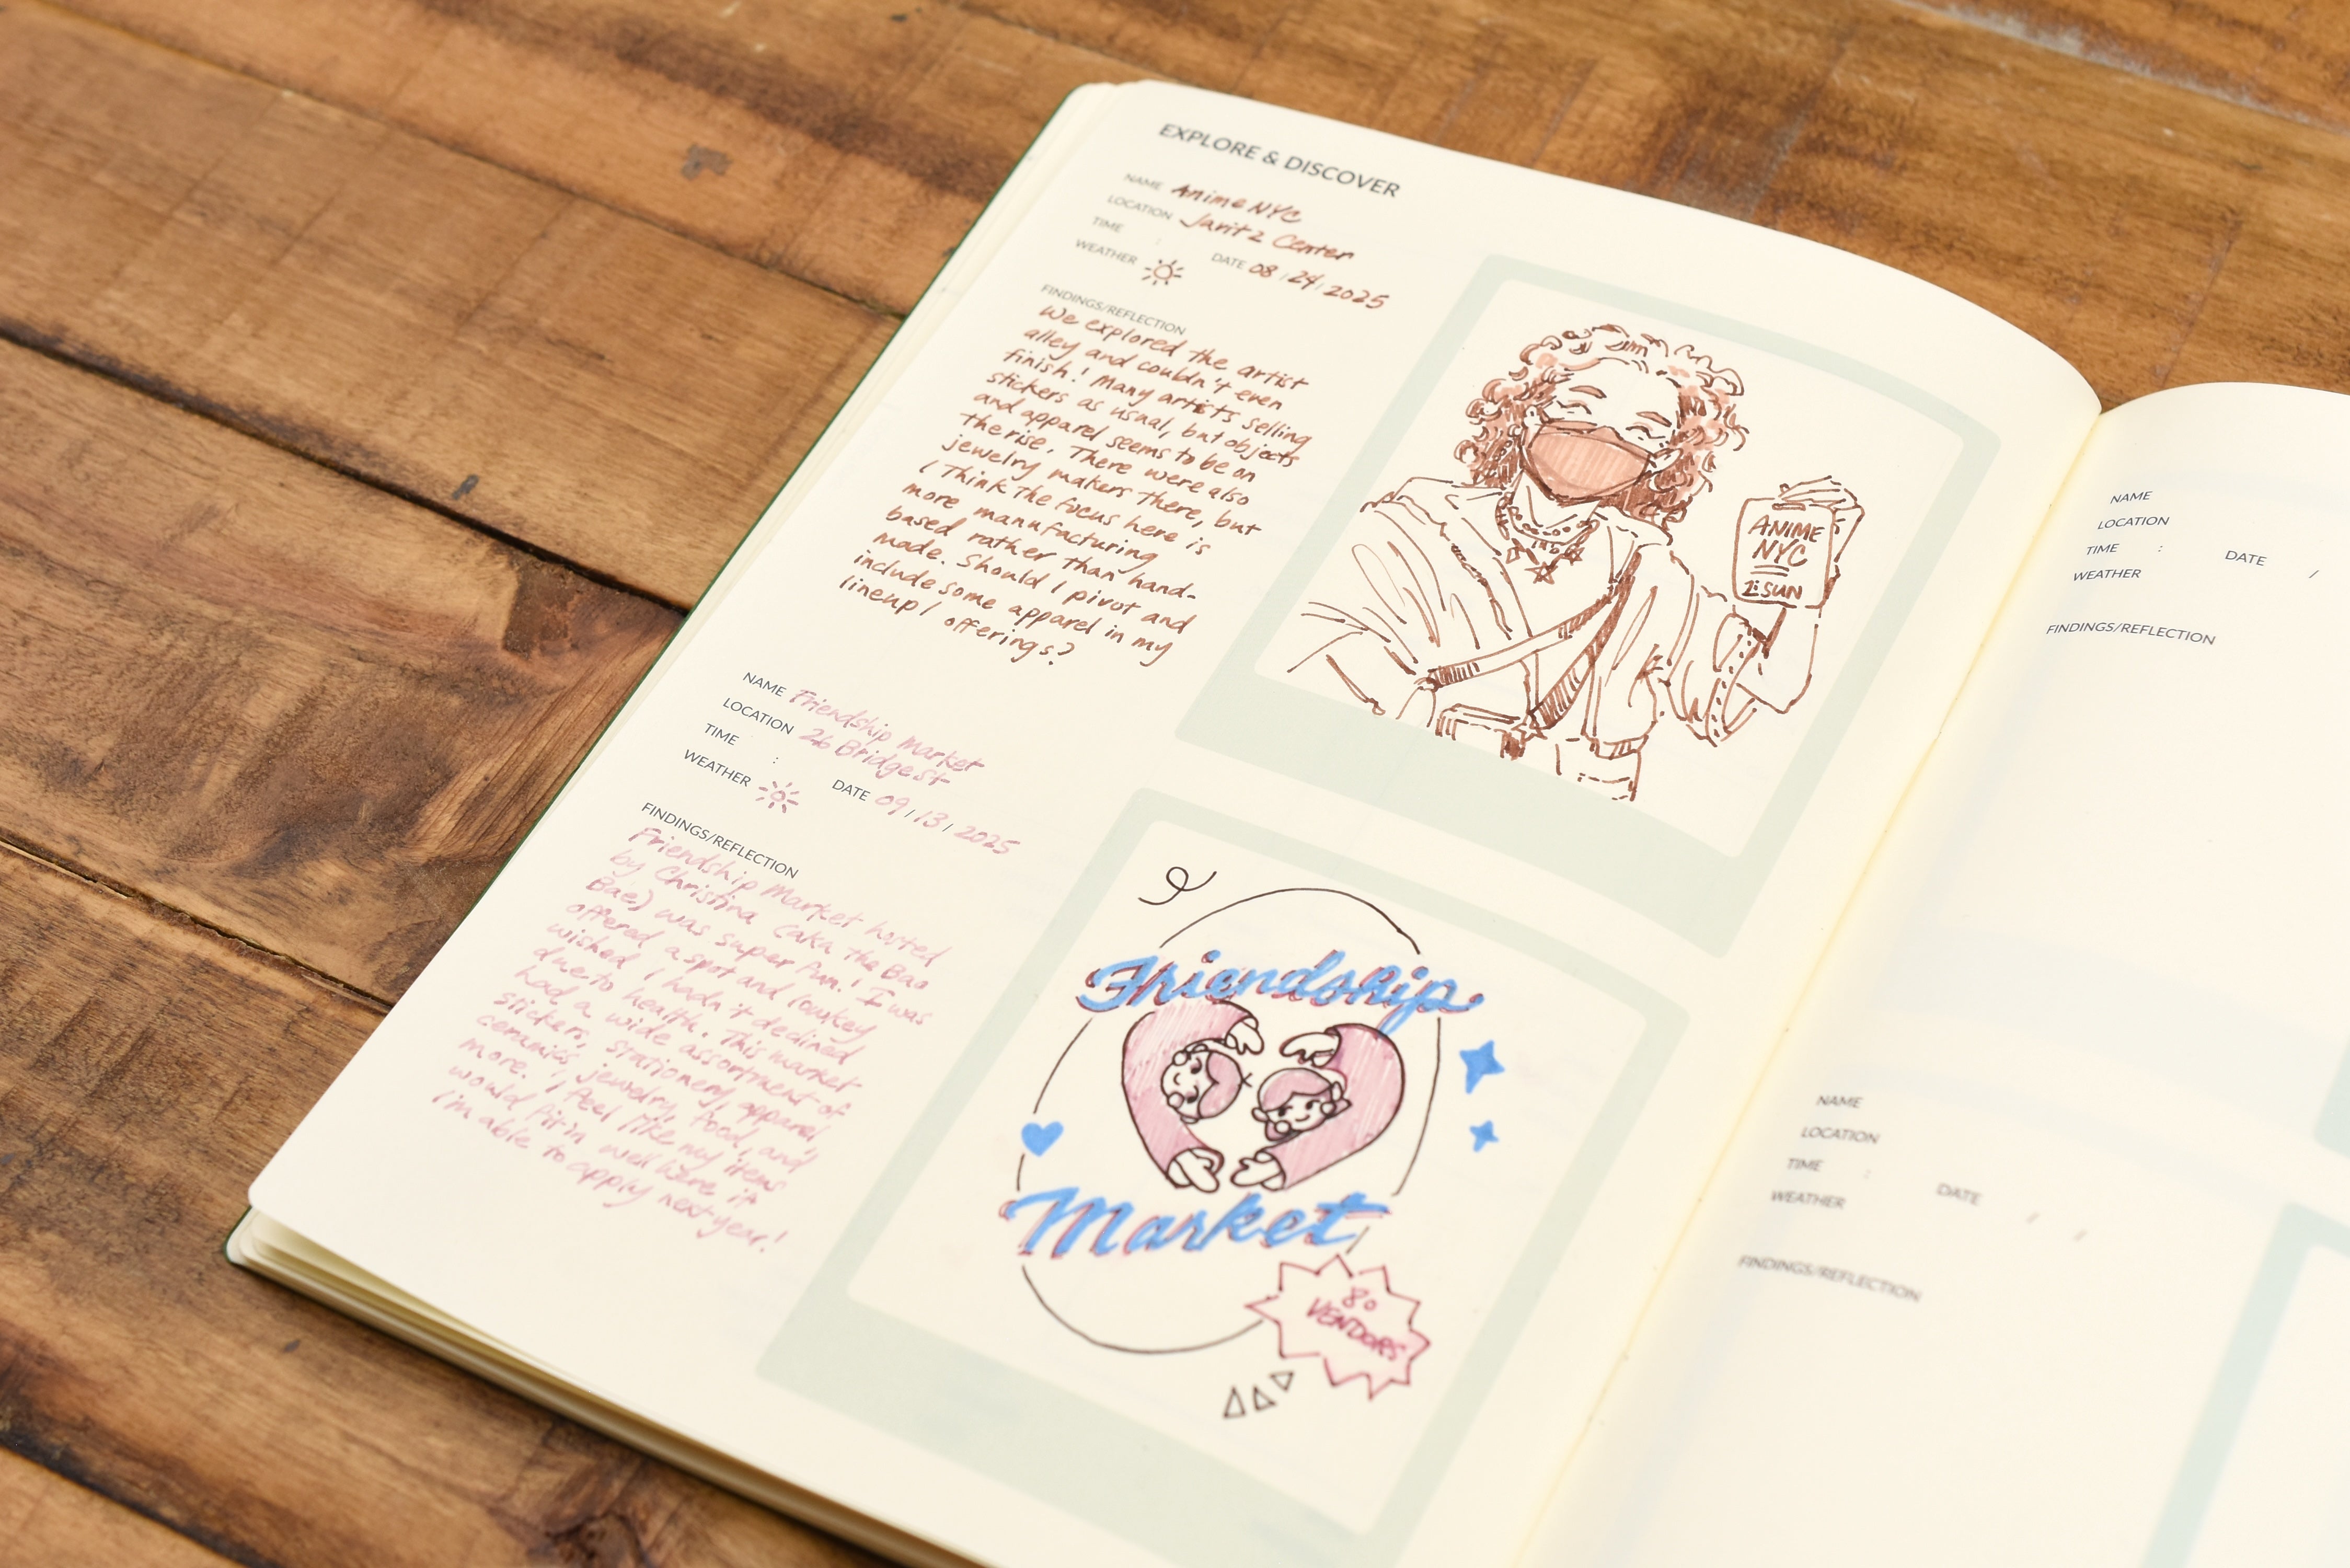 EXPLORE & DISCOVER
NAME Anime NYC
LOCATION Javitz Center
TIME :
WEATHER DATE 08 / 24 / 2025
FINDINGS/REFLECTION
We explored the artist
alley and couldn't even
finish! Many artists selling
stickers as usual, but objects
and apparel seems to be on
the rise. There were also
jewelry makers there, but
I think the focus here is
more manufacturing
based rather than hand-
made. Should I pivot and
include some apparel in my
lineup / offerings?
ANIME
NYC
SUN
NAME Friendship Market
LOCATION 26 Bridge St
TIME :
WEATHER DATE 09 / 13 / 2025
FINDINGS/REFLECTION
Friendship Market hosted
by Christina (aka the Bao
Bae) was super fun! I was
offered a spot and lowkey
wished I hadn't declined
due to health. This market
had a wide assortment of
stickers, stationery, apparel
ceramics, jewelry, food, and
more. I feel like my items
would fit in well here if
I'm able to apply next year!
Friendship
Market
80
VENDORS
NAME
LOCATION
TIME : DATE /
WEATHER
FINDINGS/REFLECTION
NAME
LOCATION
TIME :
WEATHER DATE / /
FINDINGS/REFLECTION